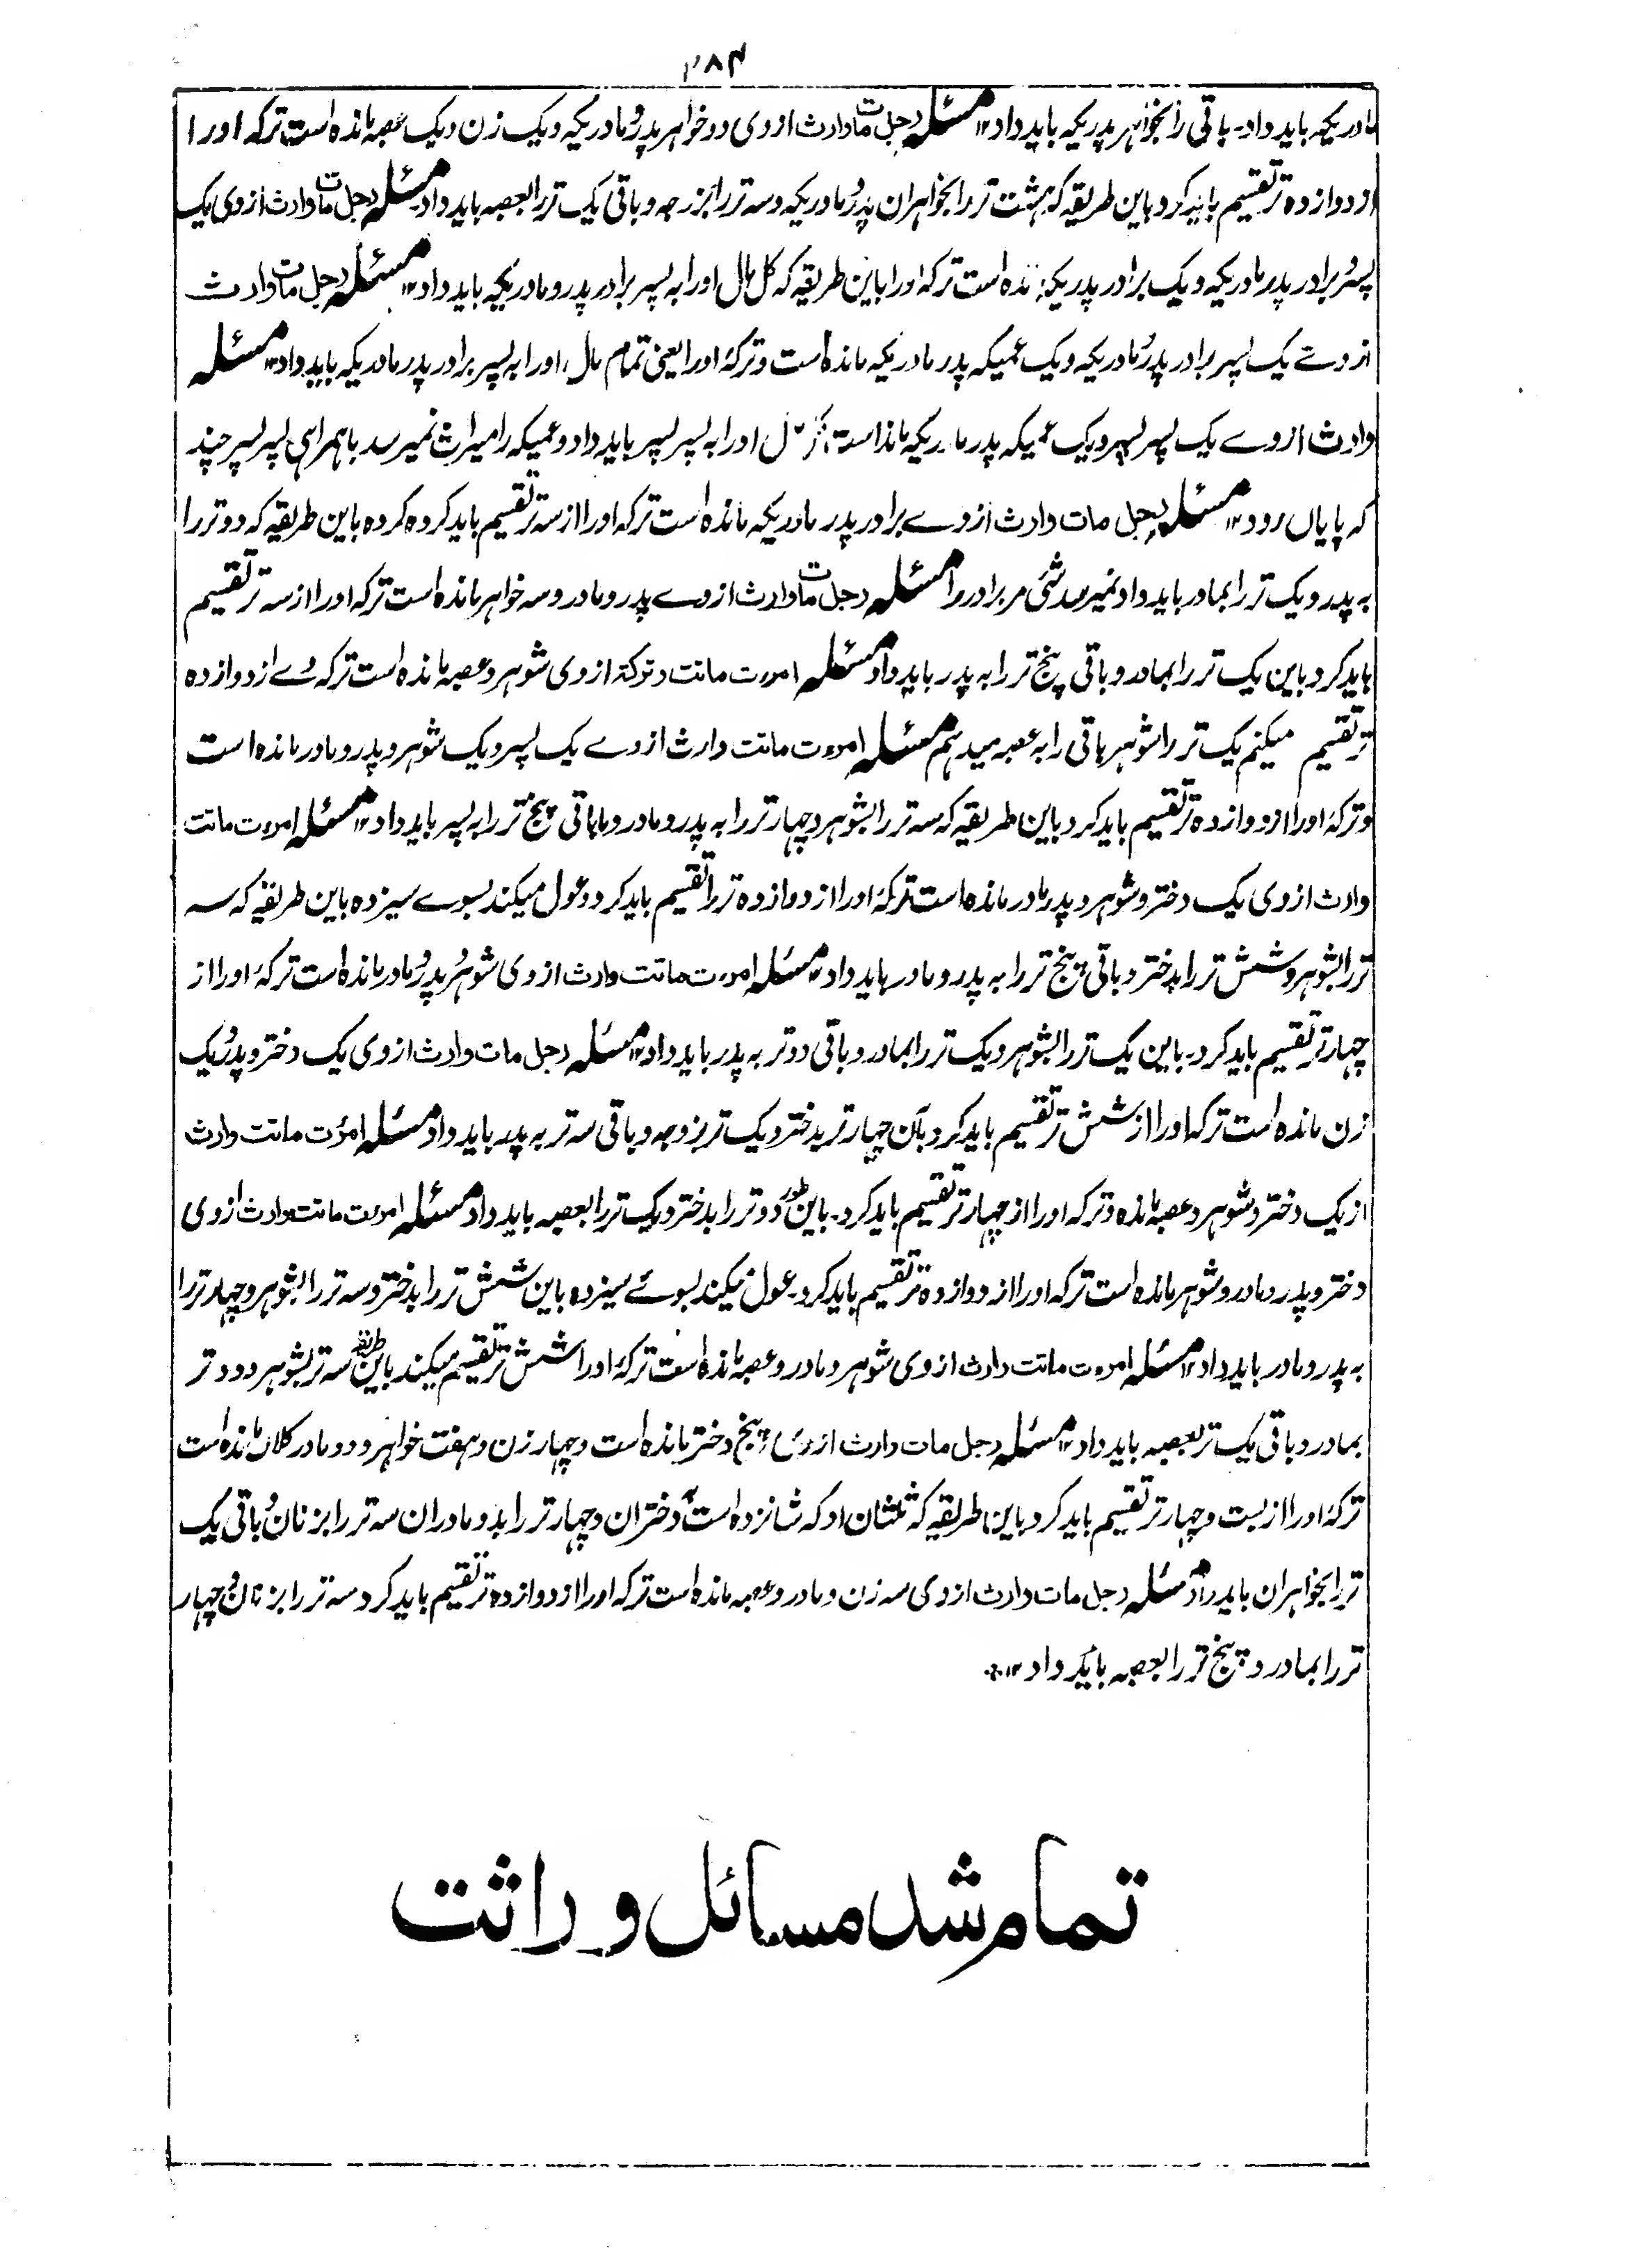 ۳۸۴
مادریکہ باید داد۔ باقی را بخواہر پدریکہ باید داد ۱۲ مسئلہ رجل مات وارث ازوی دو خواہر پدر و مادریکہ و یک زن و یک عصبہ ماندہ است ترکہ اورا
از دوازدہ تر تقسیم باید کرد باین طریقہ کہ ہشت تر را بخواہران پدر و مادریکہ و سہ تر را بزوجہ و باقی یک تر را بعصبہ باید داد مسئلہ رجل مات وارث ازوی یک
پسر برادر پدر مادریکہ و یک برادر پدریکہ ماندہ است ترکہ اورا باین طریقہ کہ کل مال اورا بہ پسر برادر پدر و مادریکہ باید داد ۱۲ مسئلہ رجل مات وارث
ازوے یک پسر برادر پدر و مادریکہ و یک عمیکہ پدر مادریکہ ماندہ است و ترکہ اورا یعنی تمام مال اورا بہ پسر برادر پدر مادریکہ باید داد ۱۲ مسئلہ
وارث ازوے یک پسر پسر و یک عمیکہ پدر مادریکہ ماندہ است اورا بہ پسر پسر باید داد و عمیکہ را میراث نمیرسد باہمراہی پسر پسر چند
کہ پایاں رود ۱۲ مسئلہ رجل مات وارث ازوے برادر پدر مادریکہ ماندہ است ترکہ اورا از سہ تر تقسیم باید کردہ کردہ باین طریقہ کہ دو تر را
بہ پدر و یک تر را بمادر باید داد نمیرسد شئی مر برادر را مسئلہ رجل مات وارث ازوے پدر و مادر و سہ خواہر ماندہ است ترکہ اورا از سہ تر تقسیم
باید کرد باین یک تر را بمادر و باقی پنج تر را بہ پدر باید داد مسئلہ امرءت ماتت و ترکہ ازوی شوہر و عصبہ ماندہ است ترکہ وے از دوازدہ
تر تقسیم میکنم یک تر را شوہر باقی را بہ عصبہ میدہم مسئلہ امرءت ماتت وارث ازوے یک پسر و یک شوہر و پدر و مادر ماندہ است
و ترکہ اورا از دوازدہ تر تقسیم باید کرد باین طریقہ کہ سہ تر را بشوہر و چہار تر را بہ پدر و مادر و ماباقی پنج تر را بہ پسر باید داد ۱۲ مسئلہ امرءت ماتت
وارث ازوی یک دختر و شوہر و پدر مادر ماندہ است ترکہ اورا از دوازدہ تر را تقسیم باید کرد و عول میکند بسوے سیزدہ باین طریقہ کہ سہ
تر را بشوہر و شش تر را بدختر و باقی پنج تر را بہ پدر و مادر باید داد ۱۲ مسئلہ امرءت ماتت وارث ازوی شوہر و پدر و مادر ماندہ است ترکہ اورا از
چہار تر تقسیم باید کرد۔ باین یک تر را بشوہر و یک تر را بمادر و باقی دو تر بہ پدر باید داد ۱۲ مسئلہ رجل مات وارث ازوی یک دختر و پدر و یک
زن ماندہ است ترکہ اورا از شش تر تقسیم باید کرد بآن چہار تر بدختر و یک تر بزوجہ و باقی سہ تر بہ پدر باید داد مسئلہ امرءت ماتت وارث
از یک دختر و شوہر و عصبہ ماندہ و ترکہ اورا از چہار تر تقسیم باید کرد۔ باین طور دو تر را بدختر و یک تر را بعصبہ باید داد مسئلہ امرءت ماتت وارث ازوی
دختر و پدر و مادر و شوہر ماندہ است ترکہ اورا از دوازدہ تر تقسیم باید کرد۔ عول میکند بسوئے سیزدہ باین شش تر را بدختر و سہ تر را بشوہر و چہار تر را
بہ پدر و مادر باید داد ۱۲ مسئلہ امرءت ماتت وارث ازوی شوہر و مادر و عصبہ ماندہ است ترکہ اورا شش تر تقسیم میکند باین طریقہ سہ تر بشوہر و دو تر
بمادر و باقی یک تر بعصبہ باید داد ۱۲ مسئلہ رجل مات وارث ازوی پنج دختر ماندہ است و چہار زن و ہفت خواہر و دو مادر کلان ماندہ است
ترکہ اورا از بست و چہار تر تقسیم باید کرد باین طریقہ کہ ثلثان او کہ شانزدہ است بہ دختران و چہار تر را بدو مادران سہ تر را بزنان و باقی یک
تر را بخواہران باید داد مسئلہ رجل مات وارث ازوی سہ زن و مادر و عصبہ ماندہ است ترکہ اورا از دوازدہ تر تقسیم باید کرد سہ تر را بزنان و چہار
تر را بمادر و پنج تر را بعصبہ باید داد ۱۲
تمام شد مسائل وراثت